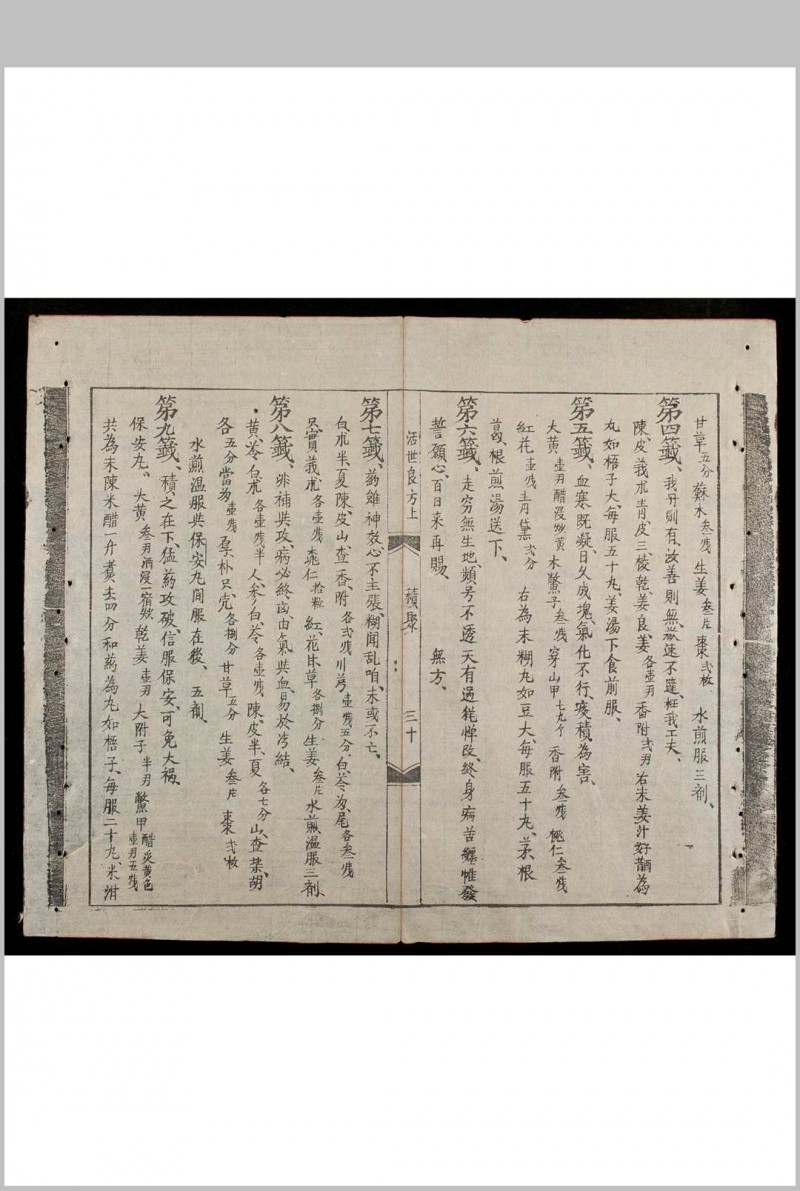 甘草五分 蘇木叁戋 生姜叁片 棗弍枚 水煎服三剂、
第四籤、我丹則有、汝善則無、欲速不達、枉我工夫、
陳皮、莪朮、青皮、三棱、乾姜、良姜各壹刄 香附弍刄 右末姜汁好醋為
丸如梧子大、每服五十丸、姜湯下食前服、
第五籤、血寒既凝、日久成塊、氣化不行、痰積為害、
大黄壹刄醋浸炒黄 木鱉子叁戋 穿山甲七九个 香附叁戋 桃仁叁戋
紅花壹戋 青黛弍分 右為末糊丸如豆大、每服五十丸、茅根
葛、根煎湯送下、
第六籤、走穷無生地、頻号不透天有過能悍改、終身病苦纏惟發
誓願心、百日来再賜、 無方、
活世良方上 積聚 三十
第七籤、药雖神効、心不主張、糊聞乱咱、未或不亡、
白朮半夏陳、皮、山、查、香、附各弍戋 川芎壹戋五分 白、苓、为、尾各叁戋
只實莪朮各壹戋 桃仁拾粒 紅花甘草各捌分 生姜叁片 水煎温服三剂
第八籤、非補與攻、病必終凶、由氣與血、易於冷結、
黄、苓、白朮各壹戋半 人參白苓各壹戋 陳皮半、夏各七分 山、查、柴、胡
各五分 當为壹戋 厚朴只、壳各捌分 甘草五分 生姜叁片 棗弍枚
水煎温服與保安丸間服在後、五剂
第九籤、積、之在下、猛药攻破、信服保安、可免大禍、
保安丸、大黄叁刄酒浸一宿炒 乾姜壹刄 大附子半刄 鱉甲醋炙黄色壹刄五戋
共為末陳米醋一升煮去四分和药為丸如梧子、每服二十丸米泔